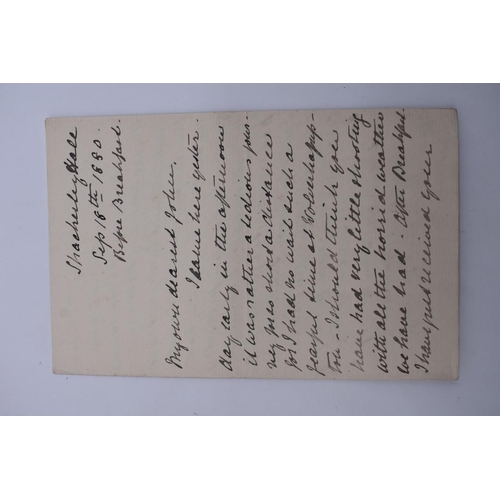 Shackerley Hall
Sep 18th 1880.
Before Breakfast.
My own dearest John,
I came here yester-
day early in the afternoon
it was rather a tedious jour-
ney for so short a distance
for I had to wait such a
fearful time at Wolverhamp-
ton - I should think you
have had very little shooting
with all the horrid weather
we have had. After Breakfast.
I have just received your